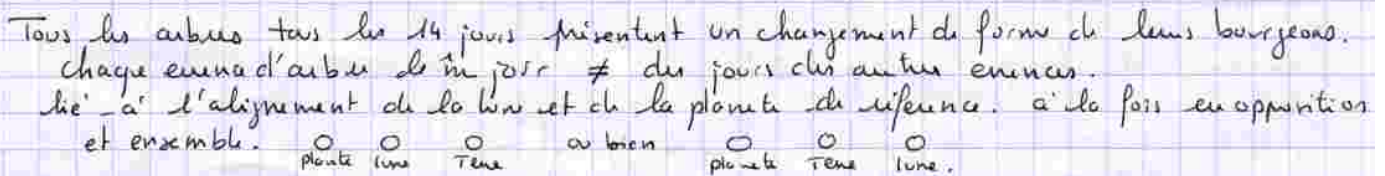 Tous les arbres tous les 14 jours présentent un changement de forme de leurs bourgeons.
chaque essence d'arbre le m̂ jour ≠ du jours des autres essences.
lié à l'alignement de la lune et de la planète de référence. à la fois en opposition
et ensemble. planète lune Terre ou bien planète Terre lune.